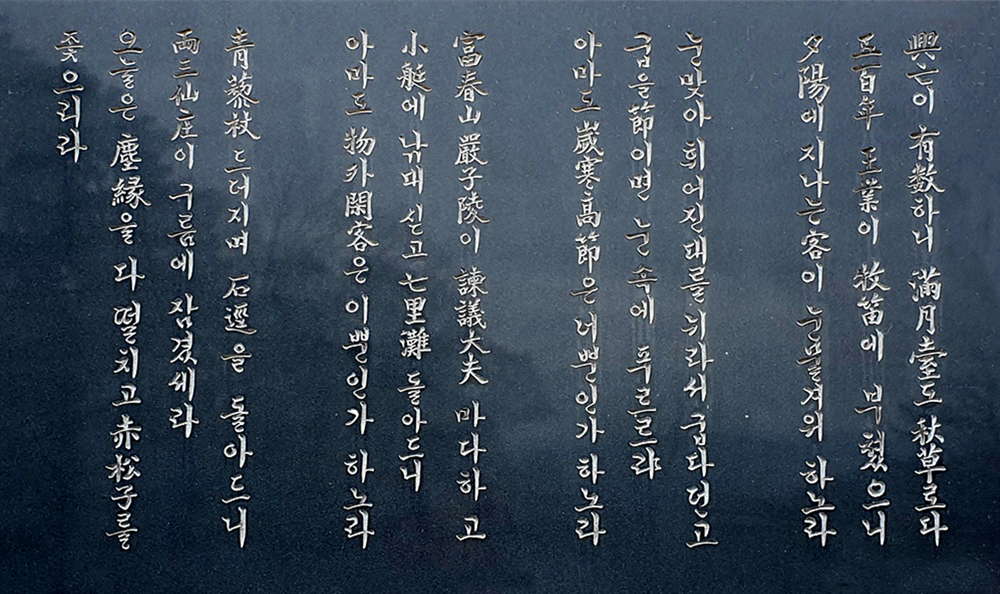 興亡이 有数하니 滿月臺도 秋草로다
五百年 王業이 牧笛에 부쳤으니
夕陽에 지나는 客이 눈물겨워 하노라
눈맞아 희어진 대를 뉘라서 굽다던고
굽을 節이면 눈 속에 푸르르랴
아마도 歲寒高節은 너뿐인가 하노라
富春山 嚴子陵이 諫議大夫 마다하고
小艇에 낚대 싣고 七里灘 돌아드니
아마도 物外閑客은 이뿐인가 하노라
青藜杖 드더지며 石逕을 돌아드니
両三仙庄이 구름에 잠겼세라
오늘은 塵縁을 다 떨치고 赤松子를
좇으리라